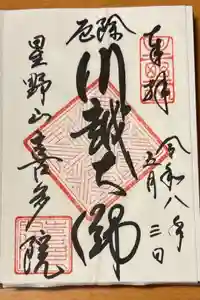 奉拝
令和八年
五月三日
厄除
川越大師
星野山喜多院